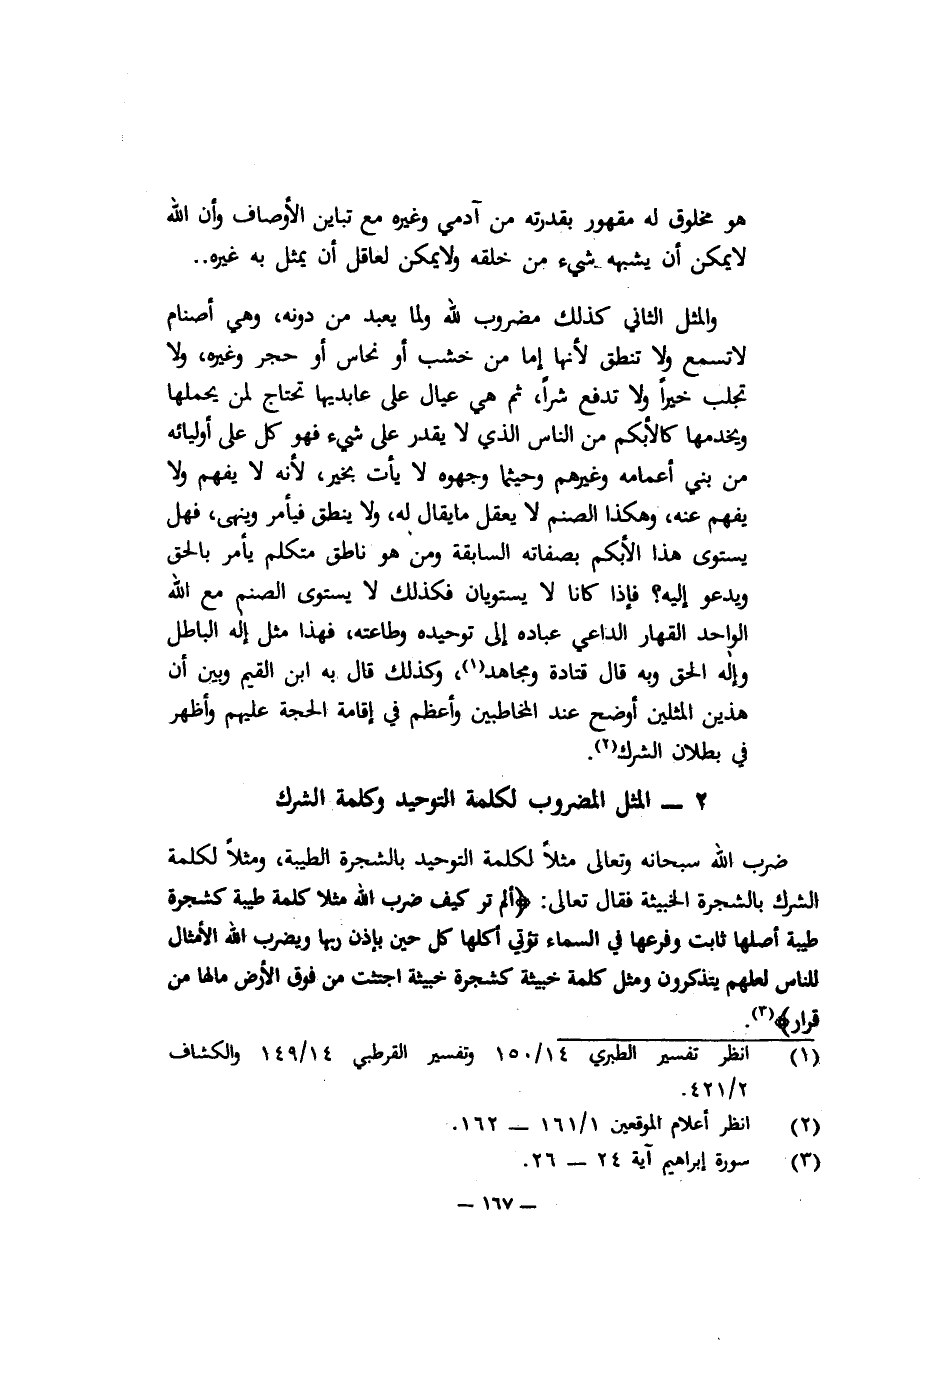 هو مخلوق له مقهور بقدرته من آدمي وغيره مع تباين الأوصاف وأن الله
لايمكن أن يشبهه شيء من خلقه ولايمكن لعاقل أن يمثل به غيره..
والمثل الثاني كذلك مضروب لله ولما يعبد من دونه، وهي أصنام
لاتسمع ولا تنطق لأنها إما من خشب أو نحاس أو حجر وغيره، ولا
تجلب خيراً ولا تدفع شراً، ثم هي عيال على عابديها تحتاج لمن يحملها
ويخدمها كالأبكم من الناس الذي لا يقدر على شيء فهو كل على أوليائه
من بني أعمامه وغيرهم وحيثما وجهوه لا يأت بخير، لأنه لا يفهم ولا
يفهم عنه، وهكذا الصنم لا يعقل مايقال له، ولا ينطق فيأمر وينهى، فهل
يستوى هذا الأبكم بصفاته السابقة ومن هو ناطق متكلم يأمر بالحق
ويدعو إليه؟ فإذا كانا لا يستويان فكذلك لا يستوى الصنم مع الله
الواحد القهار الداعي عباده إلى توحيده وطاعته، فهذا مثل إله الباطل
وإله الحق وبه قال قتادة ومجاهد(١)، وكذلك قال به ابن القيم وبين أن
هذين المثلين أوضح عند المخاطبين وأعظم في إقامة الحجة عليهم وأظهر
في بطلان الشرك(٢).
٢ ــ المثل المضروب لكلمة التوحيد وكلمة الشرك
ضرب الله سبحانه وتعالى مثلاً لكلمة التوحيد بالشجرة الطيبة، ومثلاً لكلمة
الشرك بالشجرة الخبيثة فقال تعالى: ﴿ألم تر كيف ضرب الله مثلا كلمة طيبة كشجرة
طيبة أصلها ثابت وفرعها في السماء تؤتي أكلها كل حين بإذن ربها ويضرب الله الأمثال
للناس لعلهم يتذكرون ومثل كلمة خبيثة كشجرة خبيثة اجتثت من فوق الأرض مالها من
قرار﴾(٣).
(١) انظر تفسير الطبري ١٥٠/١٤ وتفسير القرطبي ١٤٩/١٤ والكشاف
٤٢١/٢.
(٢) انظر أعلام الموقعين ١٦١/١ ــ ١٦٢.
(٣) سورة إبراهيم آية ٢٤ ــ ٢٦.
ــ ١٦٧ ــ